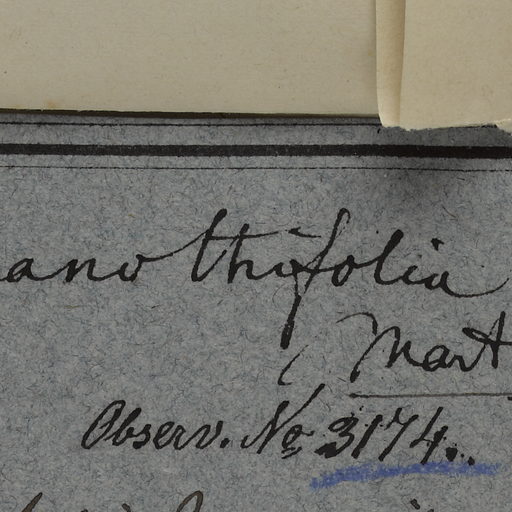 ano thifolia
Mart
Observ. No 3174.